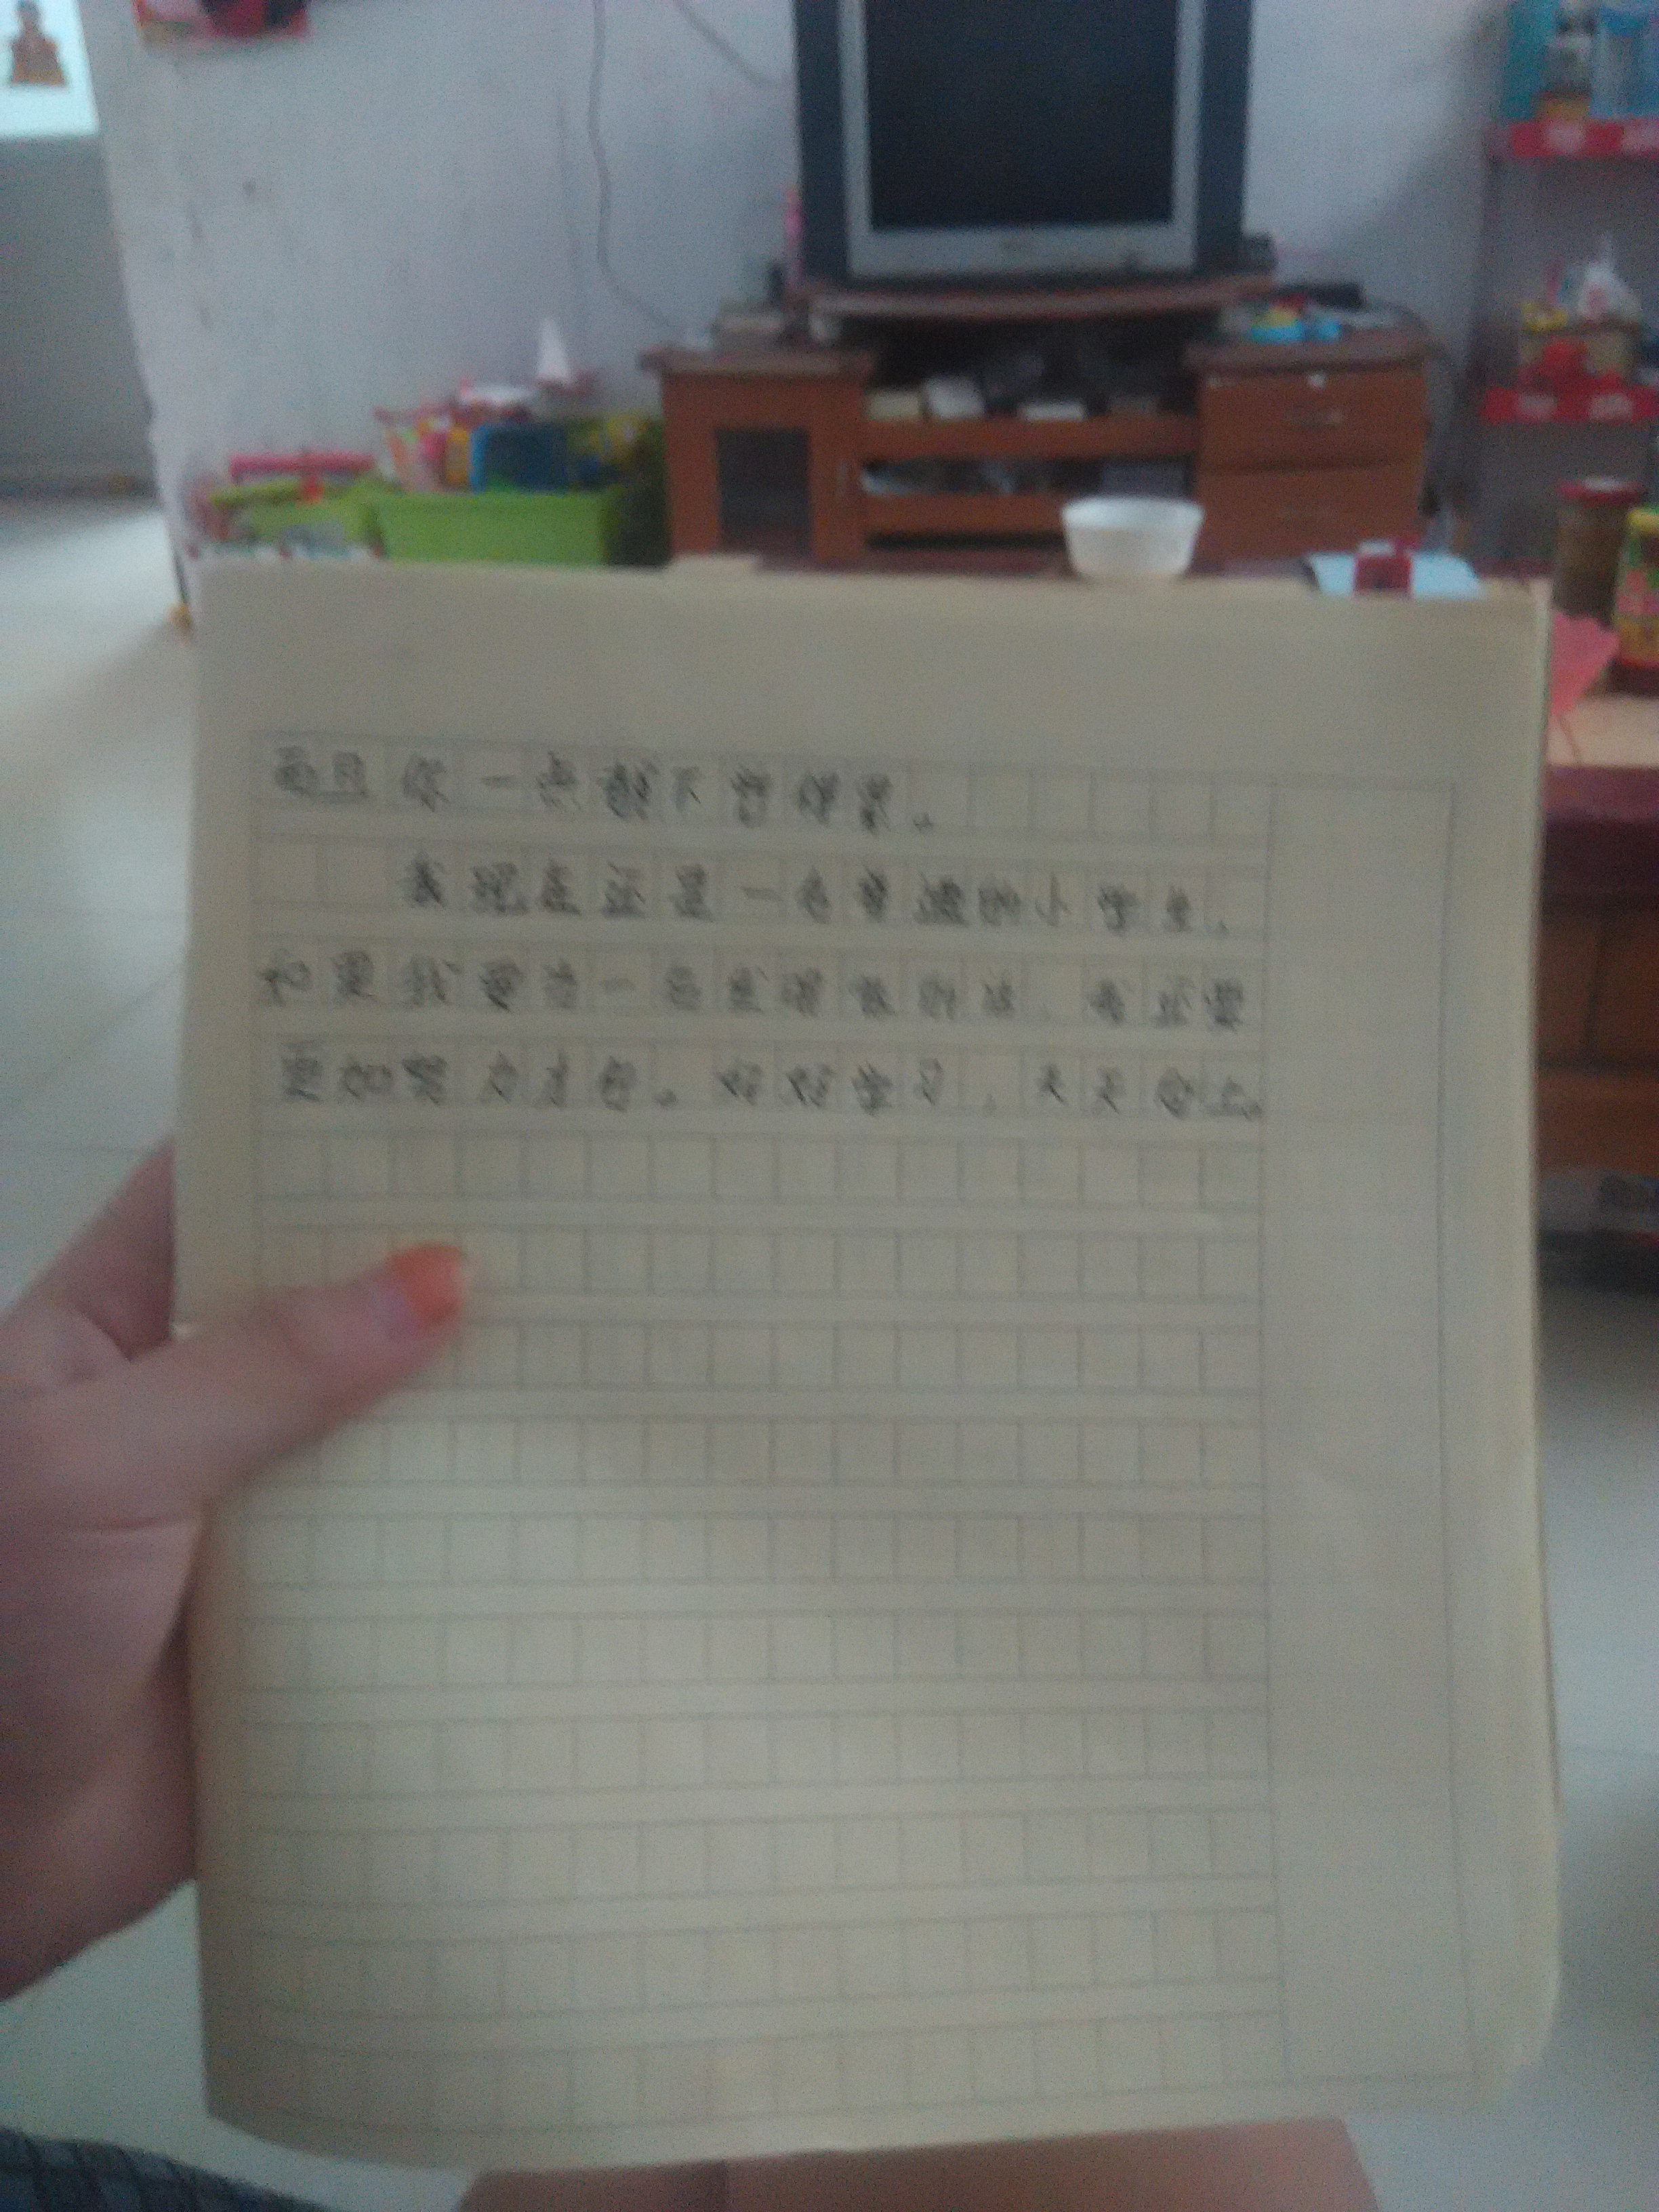 而且你一点都不觉得累。
我现在还是一名普通的小学生,
如果我要当一名的话,我还要
更加努力才行。好好学习,天天向上。